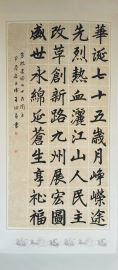 華诞七十五歲月崢嶸途
先烈熱血灑江山人民主
改革創新路九州展宏圖
盛世永綿延蒼生享祉福